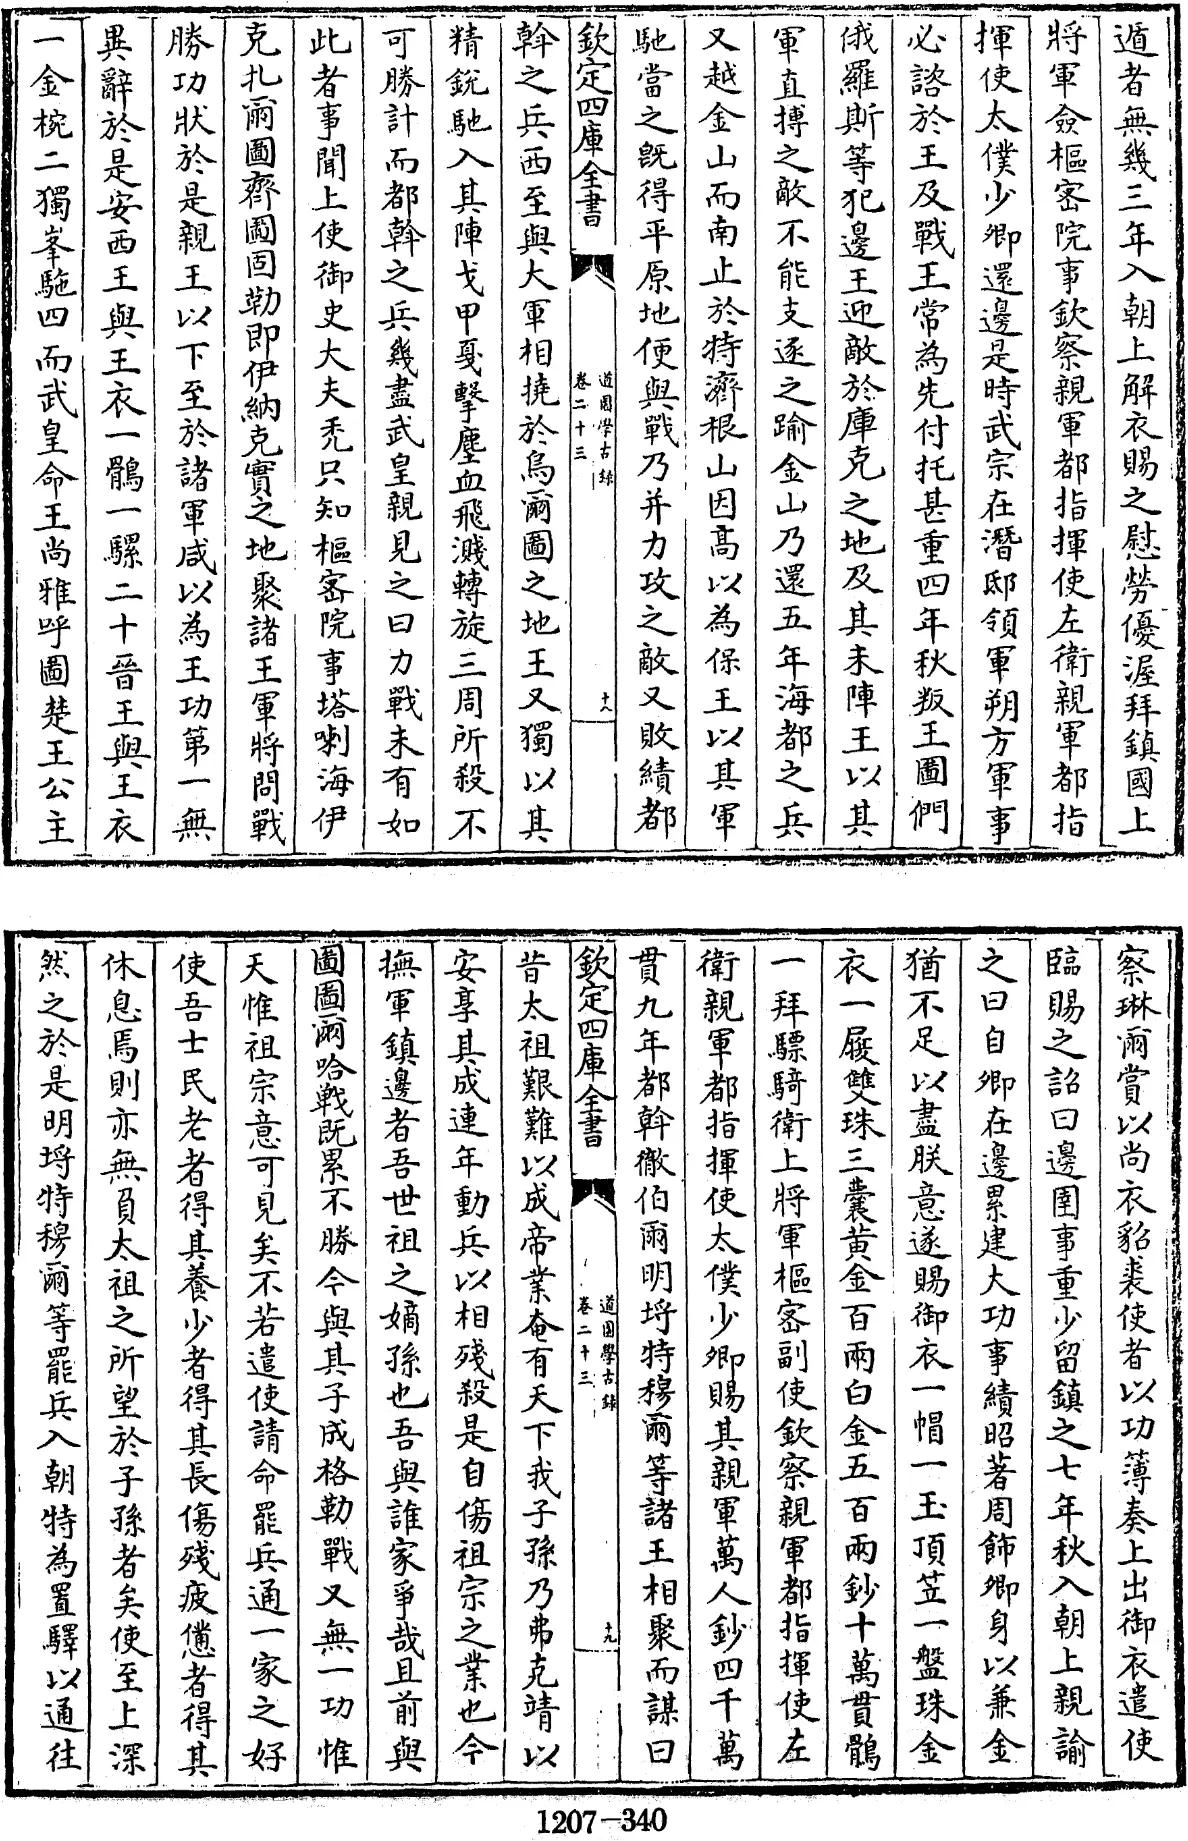 遁者無幾三年入朝上解衣賜之慰勞優渥拜鎮國上
將軍僉樞密院事欽察親軍都指揮使左衛親軍都指
揮使太僕少卿還邊是時武宗在潛邸領軍朔方軍事
必諮於王及戰王常為先付托甚重四年秋叛王圖們
俄羅斯等犯邊王迎敵於庫克之地及其未陣王以其
軍直摶之敵不能支逐之踰金山乃還五年海都之兵
又越金山而南止於特濟根山因高以為保王以其軍
馳當之既得平原地便與戰乃并力攻之敵又敗績都
欽定四庫全書
道園學古錄
卷二十三
十八
斡之兵西至與大軍相撓於烏爾圖之地王又獨以其
精銳馳入其陣戈甲戛擊塵血飛濺轉旋三周所殺不
可勝計而都斡之兵幾盡武皇親見之曰力戰未有如
此者事聞上使御史大夫禿只知樞密院事塔喇海伊
克扎爾圖齊圖固勒即伊納克實之地聚諸王軍將問戰
勝功狀於是親王以下至於諸軍咸以為王功第一無
異辭於是安西王與王衣一鶻一騾二十晉王與王衣
一金椀二獨峯駞四而武皇命王尚雅呼圖楚王公主
察琳爾賞以尚衣貂裘使者以功簿奏上出御衣遣使
臨賜之詔曰邊圉事重少留鎮之七年秋入朝上親諭
之曰自卿在邊累建大功事績昭著周飾卿身以兼金
猶不足以盡朕意遂賜御衣一帽一玉頂笠一盤珠金
衣一屐雙珠三囊黃金百兩白金五百兩鈔十萬貫鶻
一拜驃騎衛上將軍樞密副使欽察親軍都指揮使左
衛親軍都指揮使太僕少卿賜其親軍萬人鈔四千萬
貫九年都斡徹伯爾明埒特穆爾等諸王相聚而謀曰
欽定四庫全書
道園學古錄
卷二十三
十九
昔太祖艱難以成帝業奄有天下我子孫乃弗克靖以
安享其成連年動兵以相殘殺是自傷祖宗之業也今
撫軍鎮邊者吾世祖之嫡孫也吾與誰家爭哉且前與
圖圖爾哈戰既累不勝今與其子成格勒戰又無一功惟
天惟祖宗意可見矣不若遣使請命罷兵通一家之好
使吾士民老者得其養少者得其長傷殘疲憊者得其
休息焉則亦無負太祖之所望於子孫者矣使至上深
然之於是明埒特穆爾等罷兵入朝特為置驛以通往
1207-340